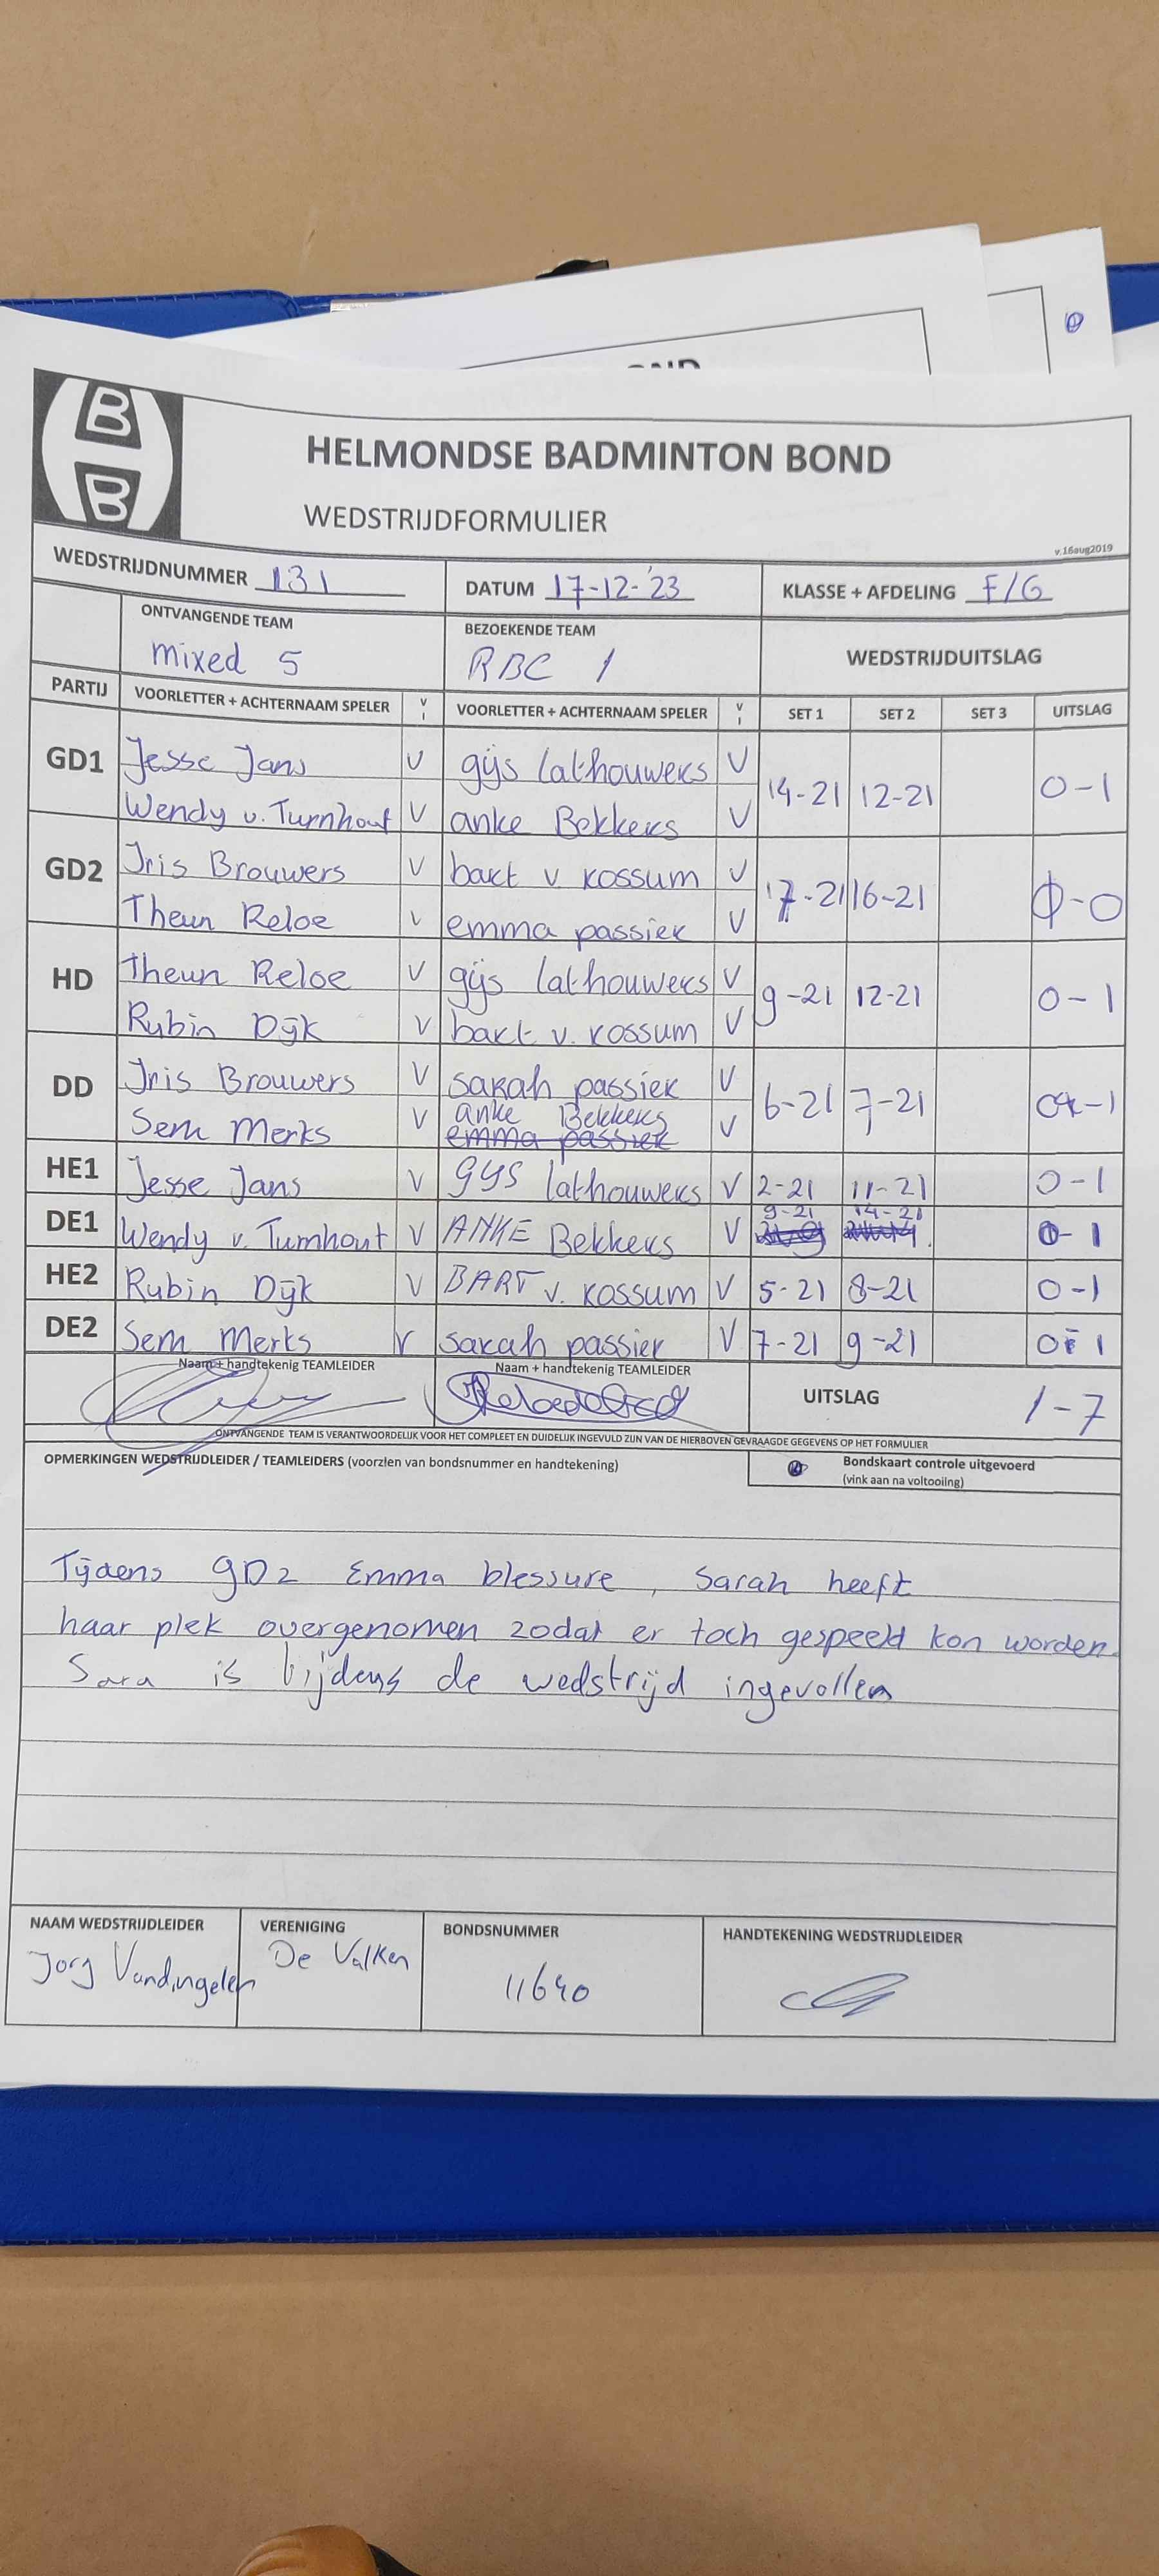 HELMONDSE BADMINTON BOND
WEDSTRIJDFORMULIER
v.16aug2019
WEDSTRIJDNUMMER 131 DATUM 17-12-'23 KLASSE + AFDELING F/G
ONTVANGENDE TEAM BEZOEKENDE TEAM WEDSTRIJDUITSLAG
mixed 5 RBC 1
PARTIJ VOORLETTER + ACHTERNAAM SPELER V I VOORLETTER + ACHTERNAAM SPELER V I SET 1 SET 2 SET 3 UITSLAG
GD1 Jesse Jans V gijs lathouwers V 14-21 12-21 0-1
Wendy v. Turnhout V anke Bekkers V
GD2 Iris Brouwers V bart v rossum V 17-21 16-21 -0
Theun Reloe V emma passier V
HD Theun Reloe V gijs lathouwers V 9-21 12-21 0-1
Rubin Dijk V bart v. rossum V
DD Iris Brouwers V sarah passier V 6-21 7-21 0-1
Sem Merks V anke Bekkers V
emma passier
HE1 Jesse Jans V gys lathouwers V 2-21 11-21 0-1
DE1 Wendy v. Turnhout V ANKE Bekkers V 9-21 14-21 0-1
HE2 Rubin Dijk V BART v. rossum V 5-21 8-21 0-1
DE2 Sem Merks V sarah passier V 7-21 9-21 0-1
Naam + handtekenig TEAMLEIDER Naam + handtekenig TEAMLEIDER UITSLAG 1-7
ONTVANGENDE TEAM IS VERANTWOORDELIJK VOOR HET COMPLEET EN DUIDELIJK INGEVULD ZIJN VAN DE HIERBOVEN GEVRAAGDE GEGEVENS OP HET FORMULIER
OPMERKINGEN WEDSTRIJDLEIDER / TEAMLEIDERS (voorzien van bondsnummer en handtekening) Bondskaart controle uitgevoerd
(vink aan na voltooiing)
Tijdens GD2 Emma blessure, Sarah heeft
haar plek overgenomen zodat er toch gespeeld kon worden.
Sara is tijdens de wedstrijd ingevallen
NAAM WEDSTRIJDLEIDER VERENIGING BONDSNUMMER HANDTEKENING WEDSTRIJDLEIDER
Jorg Vandingelen De Valken 11640